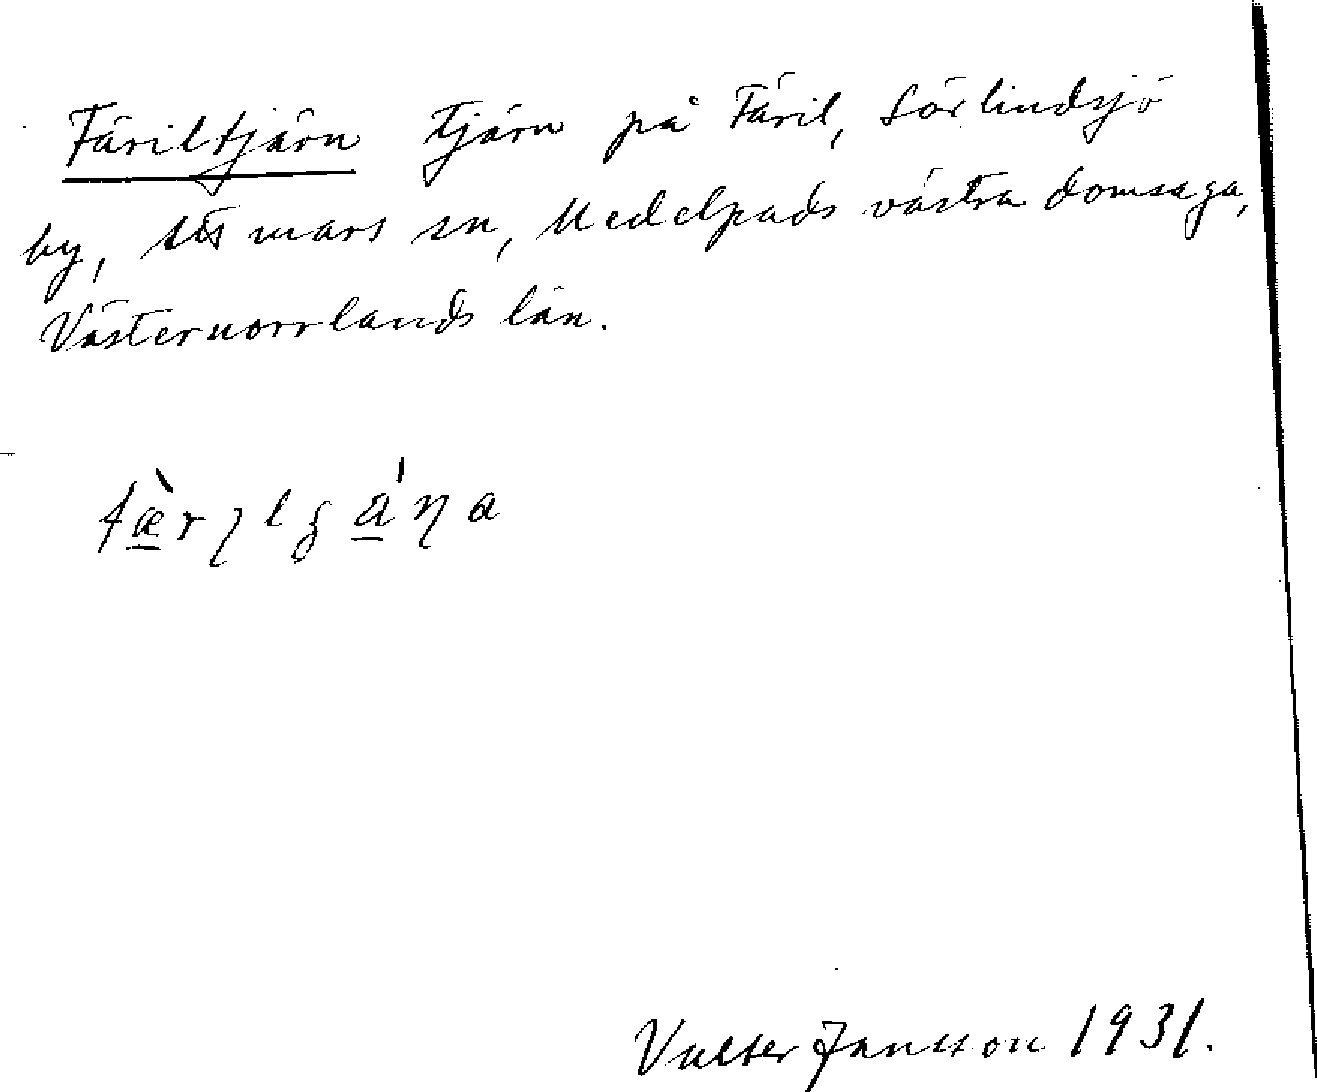 Färiltjärn tjärn på Färil, Sörlindsjö
by, Attmars sn, Medelpads västra domsaga,
Västernorrlands län.
Valter Jansson 1931.